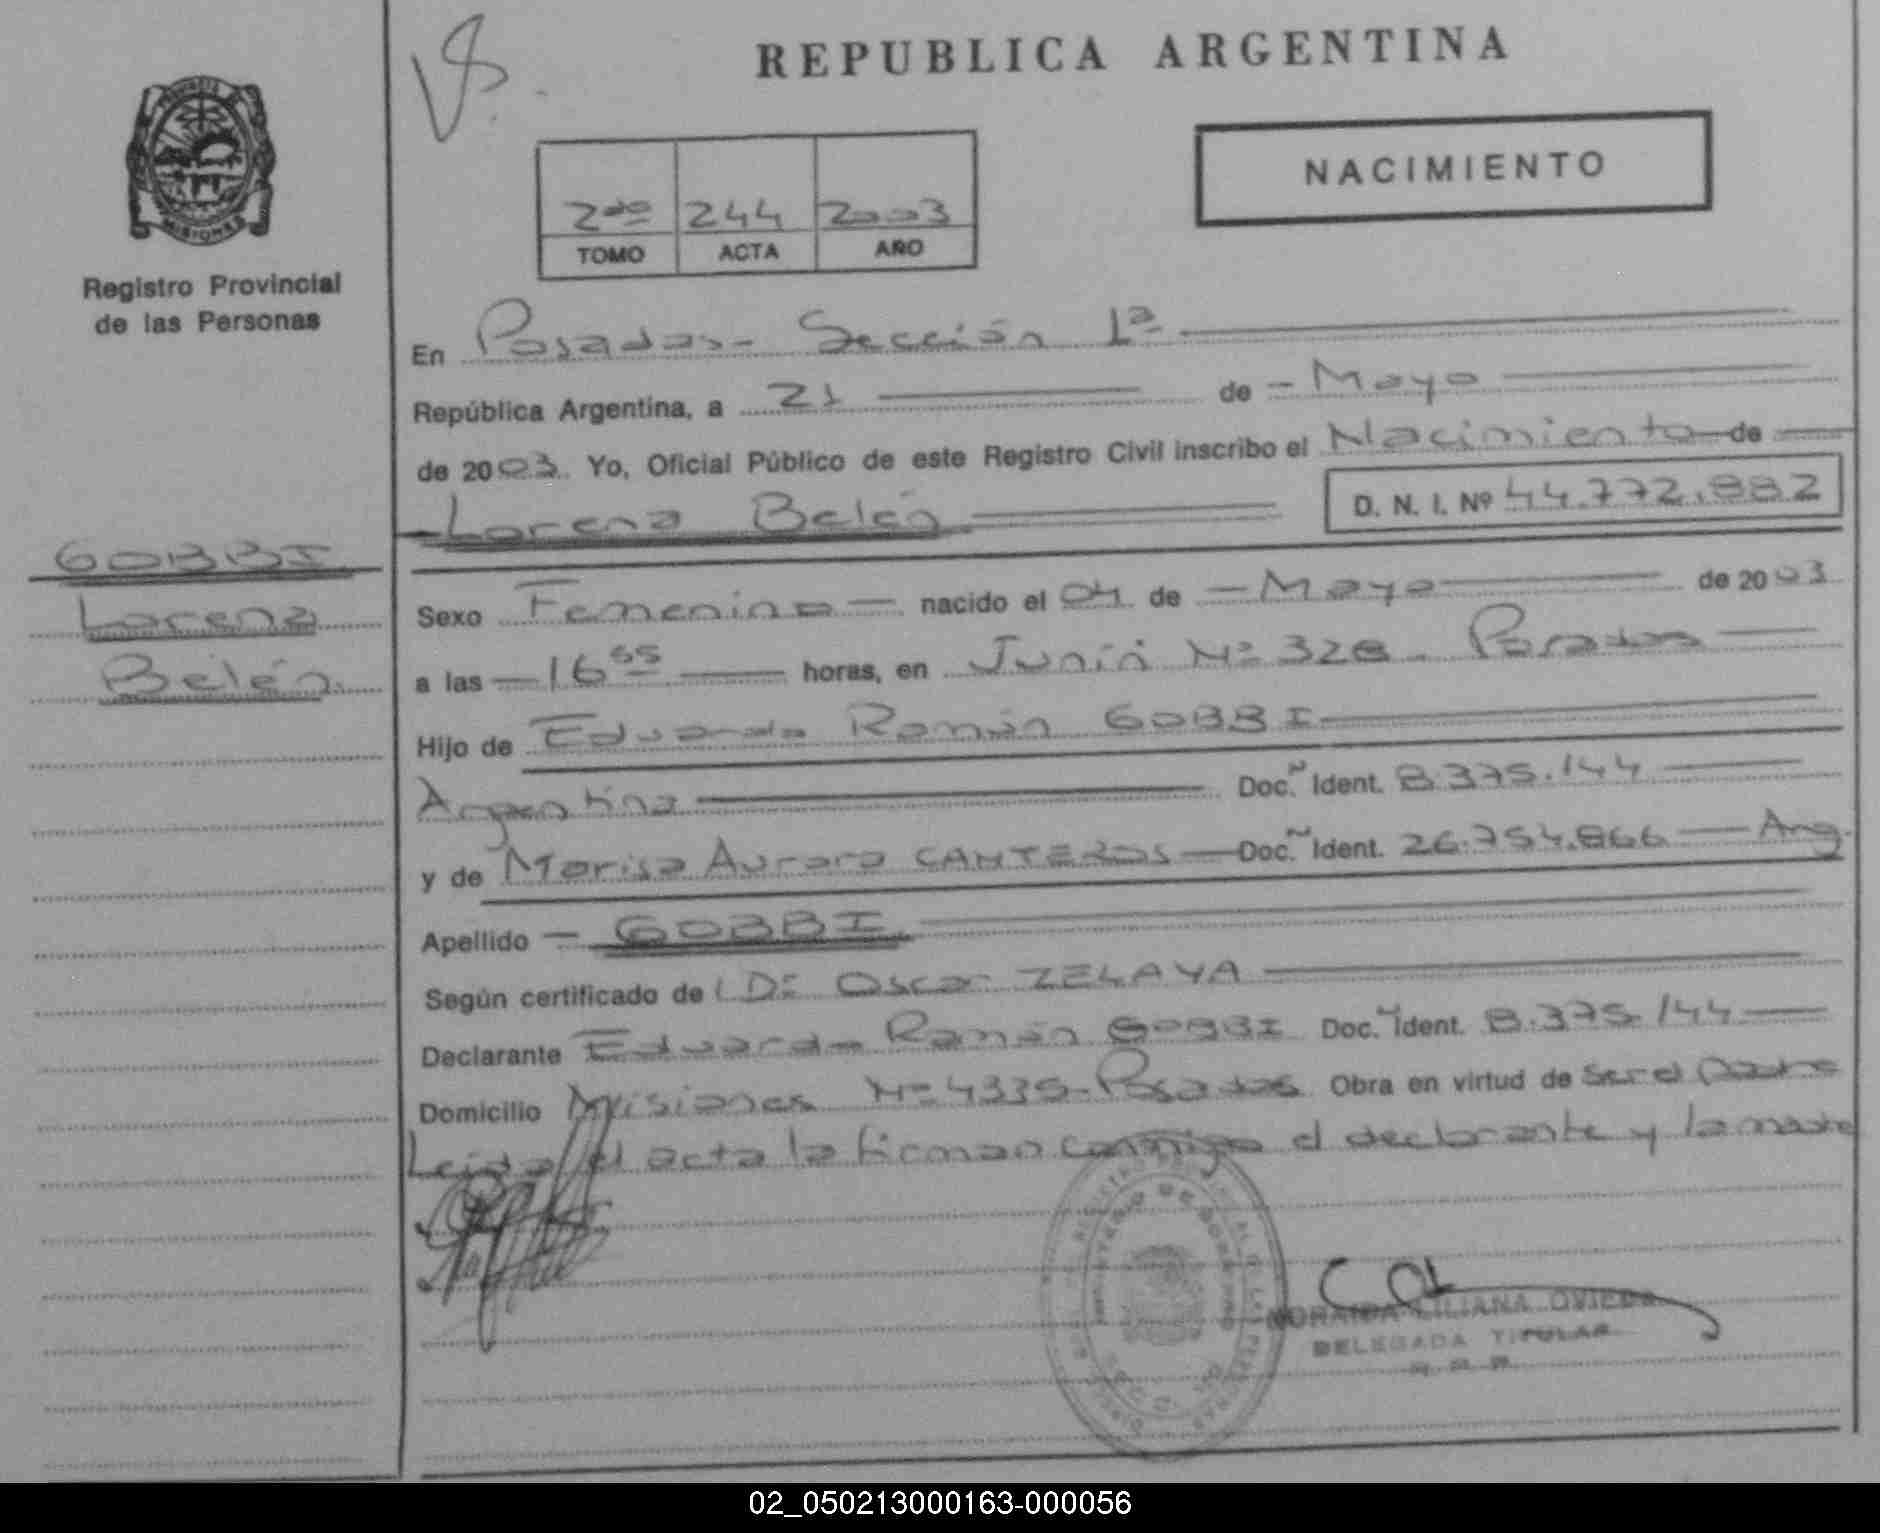 REPUBLICA ARGENTINA
NACIMIENTO
2do 244 2003
TOMO ACTA AÑO
PROVINCIA DE
MISIONES
Registro Provincial
de las Personas
En Posadas - Sección 1ª
República Argentina, a 21 de - Mayo
de 2003. Yo, Oficial Público de este Registro Civil inscribo el Nacimiento de
Lorena Belén D. N. I. Nº 44.772.882
GOBBI
Lorena
Belén.
Sexo Femenino nacido el 04 de - Mayo de 2003
a las 16 55 horas, en Junín Nº 328 - Posadas
Hijo de Eduardo Ramón GOBBI
Argentina Doc. Ident. 8.375.144
y de Marisa Aurora CANTEROS Doc. Ident. 26.754.866 Arg.
Apellido GOBBI
Según certificado de Oscar ZELAYA
Declarante Eduardo Ramón GOBBI Doc. Ident. 8.375.144
Domicilio Misiones Nº 4335 - Posadas Obra en virtud de ser el padre
Leida el acta la firman conmigo el declarante y la madre
LILIANA OVIEDO
DELEGADA TITULAR
02_050213000163-000056